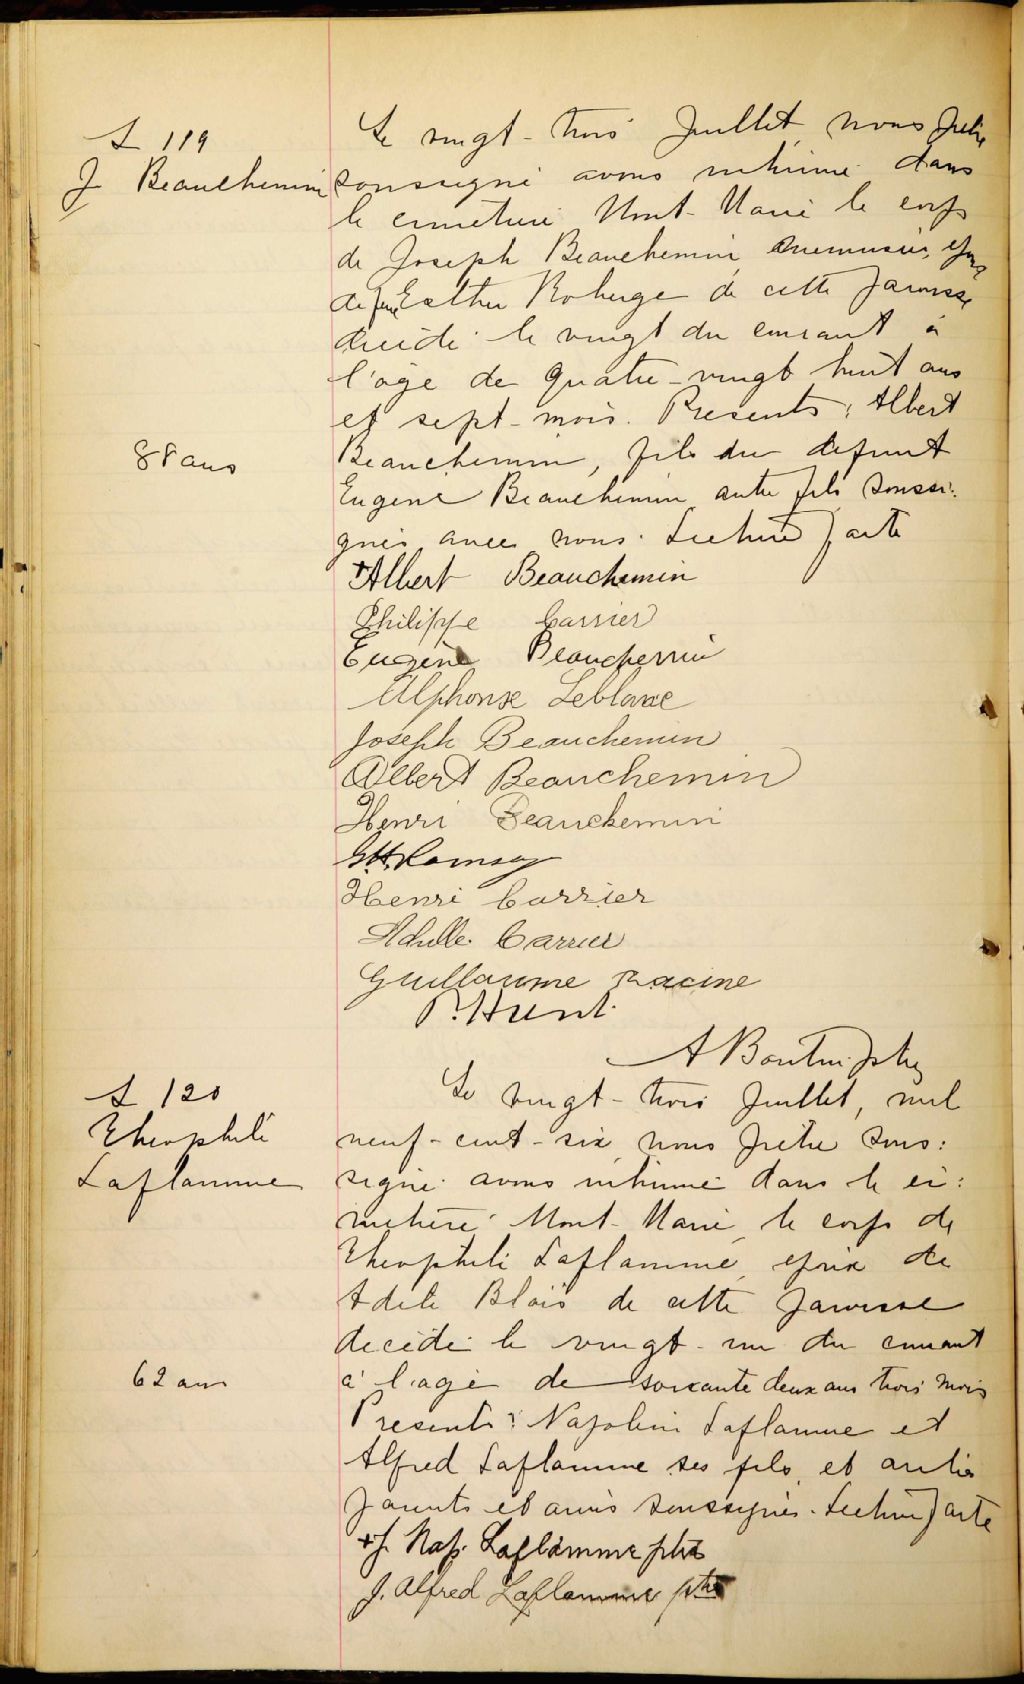 S 119
J Beauchemin
Le vingt-trois Juillet, nous prêtre
soussigné avons inhumé dans
le cimetière Mont-Marie le corps
de Joseph Beauchemin menuisier, époux
de feue Esther Roberge de cette paroisse
décédé le vingt du courant à
l'âge de quatre-vingt huit ans
et sept mois. Présents: Albert
88 ans
Beauchemin, fils du défunt
Eugène Beauchemin autre fils soussi:
gnés avec nous. Lecture faite
+Albert Beauchemin
Philippe Carrier
Eugène Beauchemin
Alphonse Leblanc
Joseph Beauchemin
Albert Beauchemin
Henri Beauchemin
Ramsay
Henri Carrier
Achille Carrier
Guillaume Racine
P. Hunt
A Boutin ptre
S 120
Théophile
Laflamme
Le vingt-trois Juillet, mil
neuf-cent-six, nous prêtre sous:
signé avons inhumé dans le ci:
metière Mont-Marie, le corps de
Théophile Laflamme, époux de
Adèle Blais de cette paroisse
décédé le vingt-un du courant
62 ans
à l'âge de soixante deux ans trois mois
Présents: Napoléon Laflamme et
Alfred Laflamme ses fils, et autres
parents et amis soussignés. Lecture faite
+J. Nap. Laflamme ptre
J. Alfred Laflamme ptre